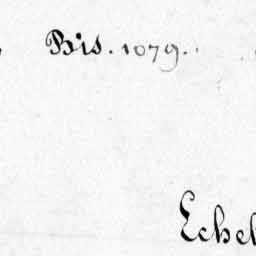 Bis. 1079.
Echel